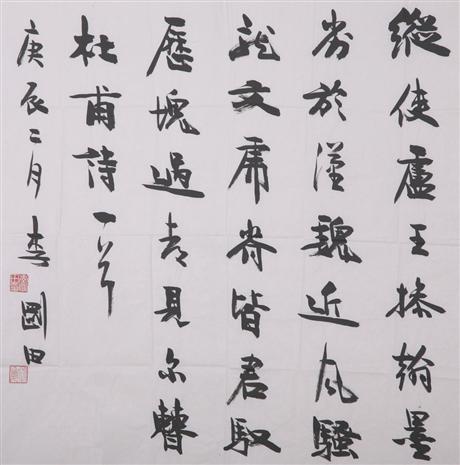 縱使盧王操翰墨
劣於漢魏近風騷
龍文虎脊皆君馭
歷塊過都見尔曹
杜甫詩一首
庚辰二月李剛田